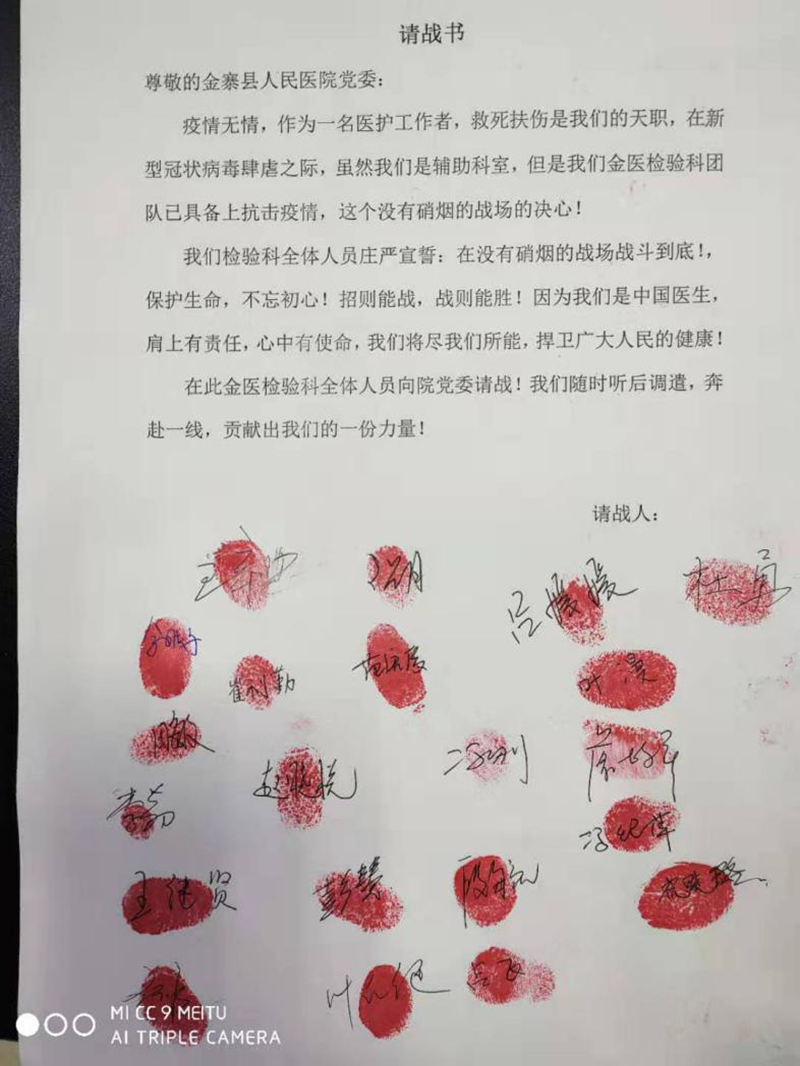 请战书
尊敬的金寨县人民医院党委：
疫情无情，作为一名医护工作者，救死扶伤是我们的天职，在新
型冠状病毒肆虐之际，虽然我们是辅助科室，但是我们金医检验科团
队已具备上抗击疫情，这个没有硝烟的战场的决心！
我们检验科全体人员庄严宣誓：在没有硝烟的战场战斗到底！，
保护生命，不忘初心！招则能战，战则能胜！因为我们是中国医生，
肩上有责任，心中有使命，我们将尽我们所能，捍卫广大人民的健康！
在此金医检验科全体人员向院党委请战！我们随时听后调遣，奔
赴一线，贡献出我们的一份力量！
请战人：
吕媛媛 杜宜
崔利勤
赵晓悦
王继贤 彭赞
MI CC 9 MEITU
AI TRIPLE CAMERA